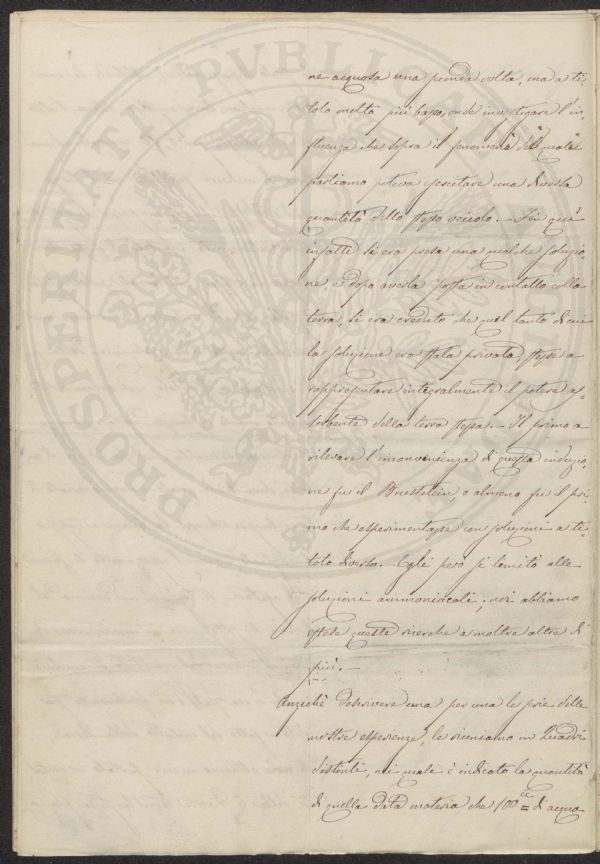 ne acquosa una seconda volta, ma a ti-
tolo molto più basso, onde investigare l'in-
fluenza che sopra il fenomeno del quale
parliamo poteva esercitare una diversa
quantità dello stesso veicolo. - Fin qui
infatti si era presa una qualche soluzio
ne e dopo averla posta in contatto colla
terra, si era creduto che quel tanto di cui
la soluzione era stata privata, stesse a
rappresentare integralmente il potere as-
sorbente della terra stessa. - Il primo a
rilevare l'inconvenienza di questa induzio
ne fu il Brustlein, o almeno fu il pri-
mo che esperimentasse con soluzioni a ti-
tolo diverso. - Egli però si limitò alle
soluzioni ammoniacali; noi abbiamo
estese queste ricerche a molte altre di
più. -
Anzichè descrivere una per una le serie delle
nostre esperienze, le riuniamo in Quadri
distinti, nei quali è indicato la quantità
di quella data materia che 100 cc di acqua
PROSPERITATI PVBLICAE